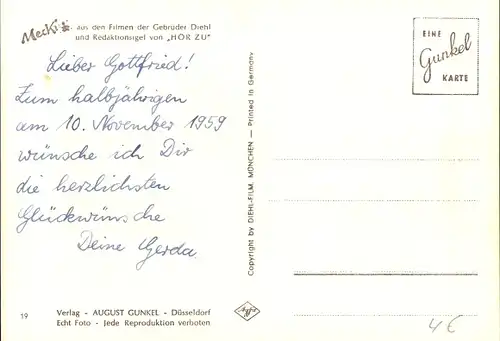 Mecki aus den Filmen der Gebrüder Diehl
und Redaktionsigel von „HÖR ZU"
Lieber Gottfried!
Zum halbjährigen
am 10. November 1959
wünsche ich Dir
die herzlichsten
Glückwünsche
Deine Gerda
Verlag - AUGUST GUNKEL - Düsseldorf
Echt Foto - Jede Reproduktion verboten
19
Copyright by DIEHL-FILM, MÜNCHEN — Printed in Germany
EINE
Gunkel
KARTE
Agfa
4 €